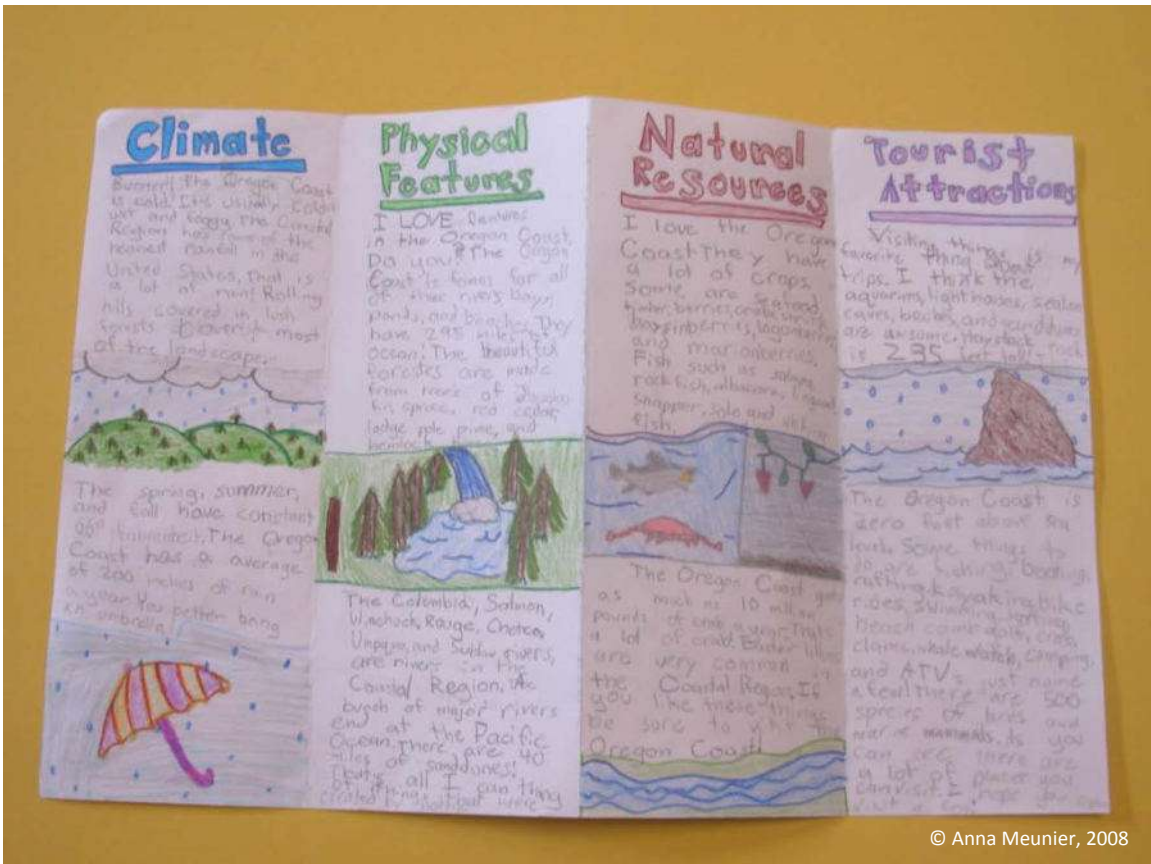 Climate
The Oregon Coast
is cold. It's usually
wet and foggy. The Coastal
Region has one of the
heaviest rainfall in the
United States. That is
a lot of rain! Rolling
hills covered in lush
forests most
of the landscape.
The spring, summer,
and fall have constant
The Oregon
Coast has a average
of 200 inches of rain
a year. You better bring
an umbrella.
Physical
Features
I LOVE
in the Oregon Coast,
Do you? The Oregon
Coast is for all
of their rivers, bays,
ponds, and beaches. They
have 295 miles of
ocean! The beautiful
forestes are made
from trees of Douglas
fir, spruce, red cedar,
lodge pole pine, and
hemlock
The Columbia, Salmon,
Winchuck, Rouge, Chetco,
Umpqua, and rivers,
are rivers in the
Coastal Region. A
bunch of major rivers
end at the Pacific
Ocean. There are 40
miles of sanddunes!
That's all I can thing
Natural
Resources
I love the Oregon
Coast They have
a lot of crops
some are seafood,
and marionberries.
Fish such as salmon,
rock fish, albacore,
snapper, sole and
fish.
The Oregon Coast gets
as much as 10 million
pounds of crab a year. That's
a lot of crab!
are very common in
the Coastal Region. If
you like these things
be sure to visit the
Oregon Coast!
Tourist
Attractions
Visiting things is my
favorite thing about
trips. I think the
aquariums, lighthouses, sealion
caves, beaches, and
are awsome. Haystack Rock
is 235 feet tall!
The Oregon Coast is
zero feet above sea
level. Some things to
do are fishing, boating,
rafting, kayaking, bike
rides, swimming,
beach comb, crab,
clams, whale watch, camping,
and ATV's, just name
a few! There are 500
species of birds and
mammals. As you
can see there are
a lot of places you
can visit. I hope you
© Anna Meunier, 2008